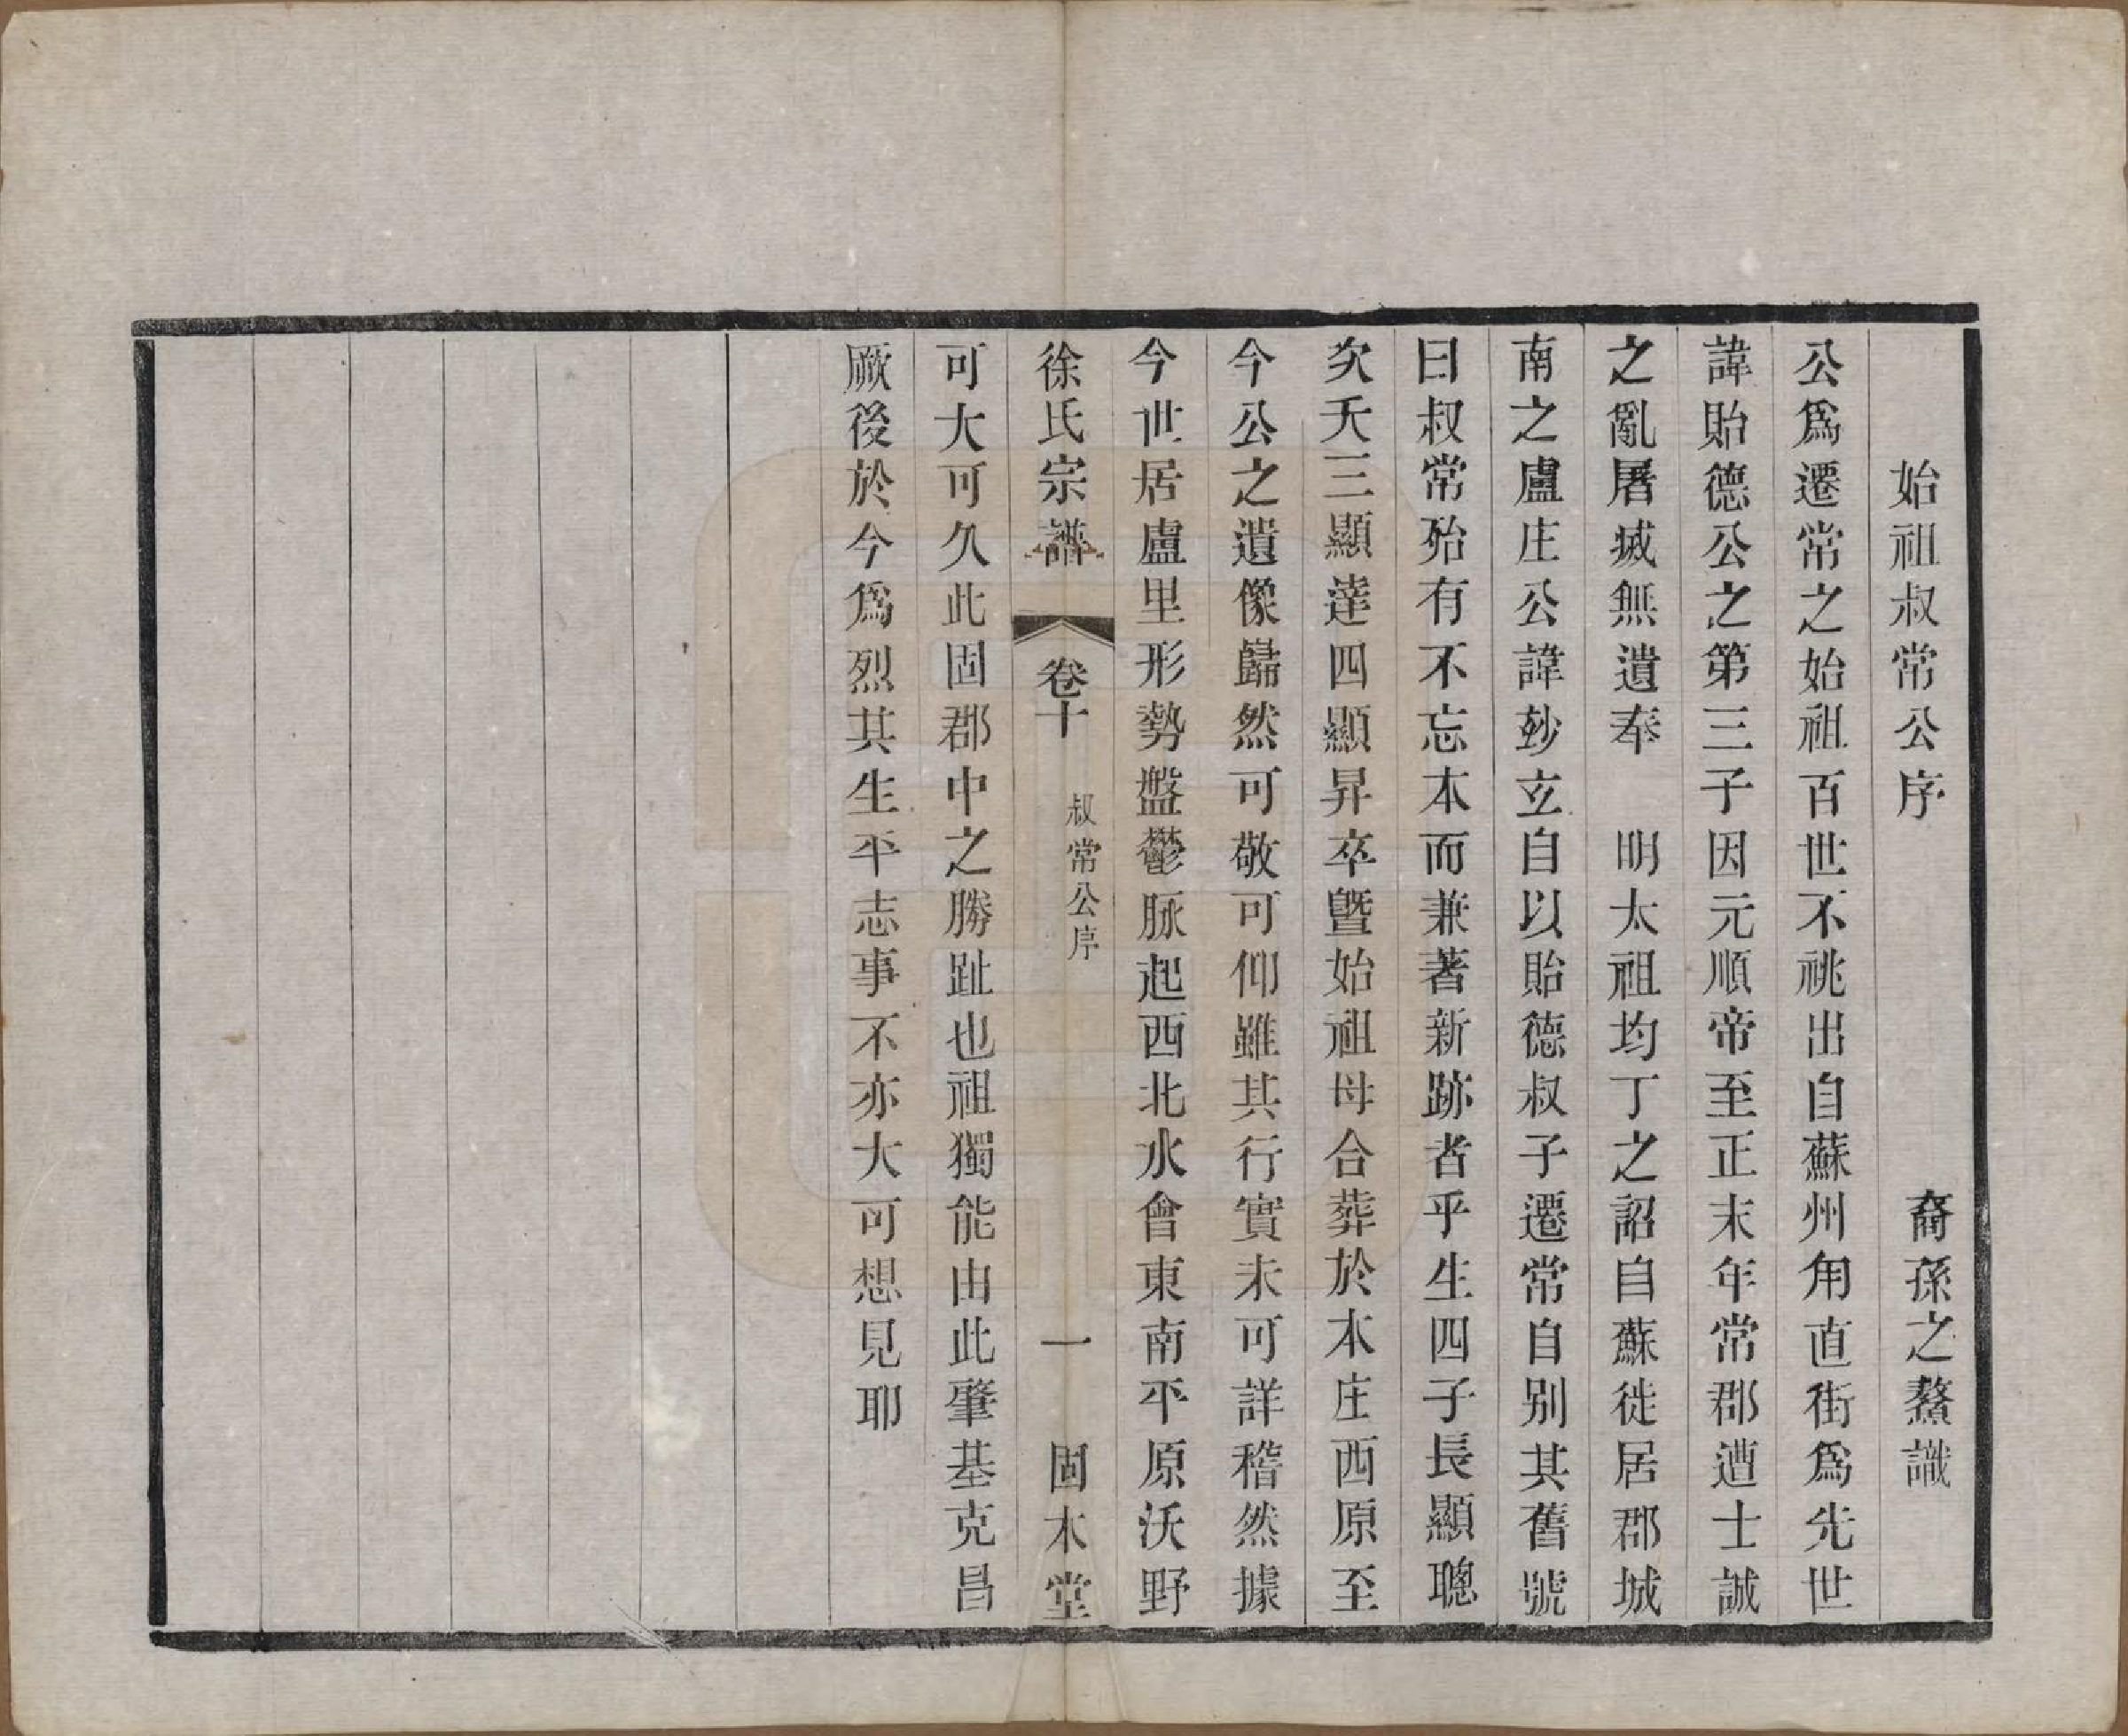 始祖叔常公序　　　裔孫之鰲識
公爲遷常之始祖百世不祧出自蘇州甪直街爲先世
諱貽德公之第三子因元順帝至正末年常郡遭士誠
之亂屠滅無遺奉　明太祖均丁之詔自蘇徙居郡城
南之盧庄公諱玅玄自以貽德叔子遷常自别其舊號
曰叔常殆有不忘本而兼著新跡者乎生四子長顯聰
次夭三顯達四顯昇卒曁始祖母合葬於本庄西原至
今公之遺像歸然可敬可仰雖其行實未可詳稽然據
今世居盧里形勢盤鬱脉起西北水會東南平原沃野
徐氏宗譜　卷十　叔常公序　一　固本堂
可大可久此固郡中之勝趾也祖獨能由此肇基克昌
厥後於今爲烈其生平志事不亦大可想見耶